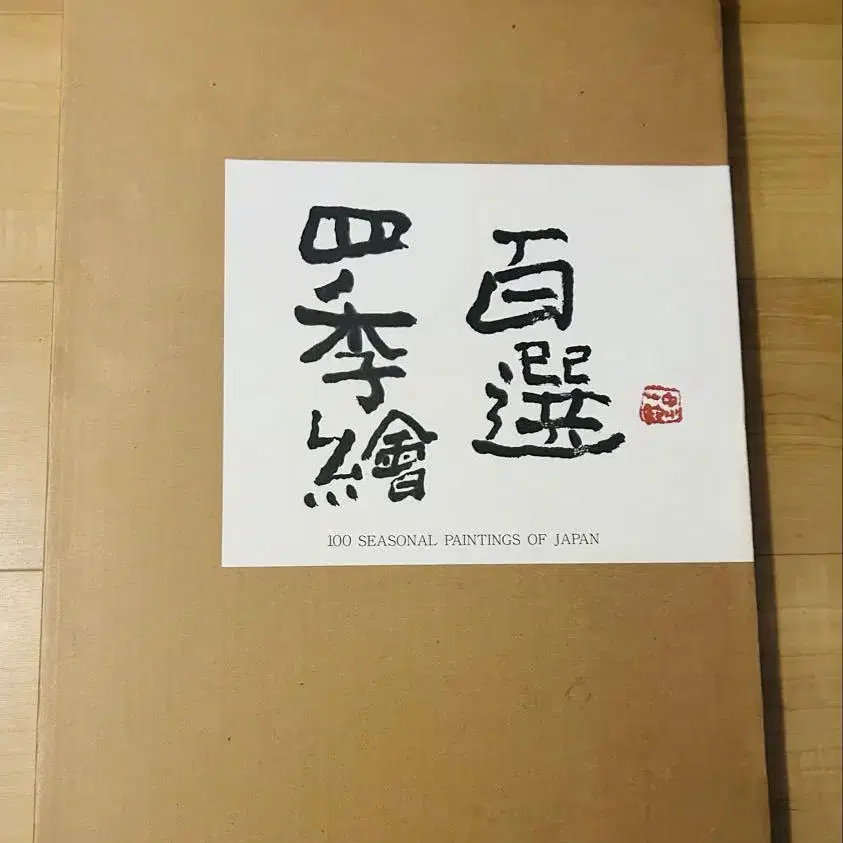 四季繪
百選
100 SEASONAL PAINTINGS OF JAPAN